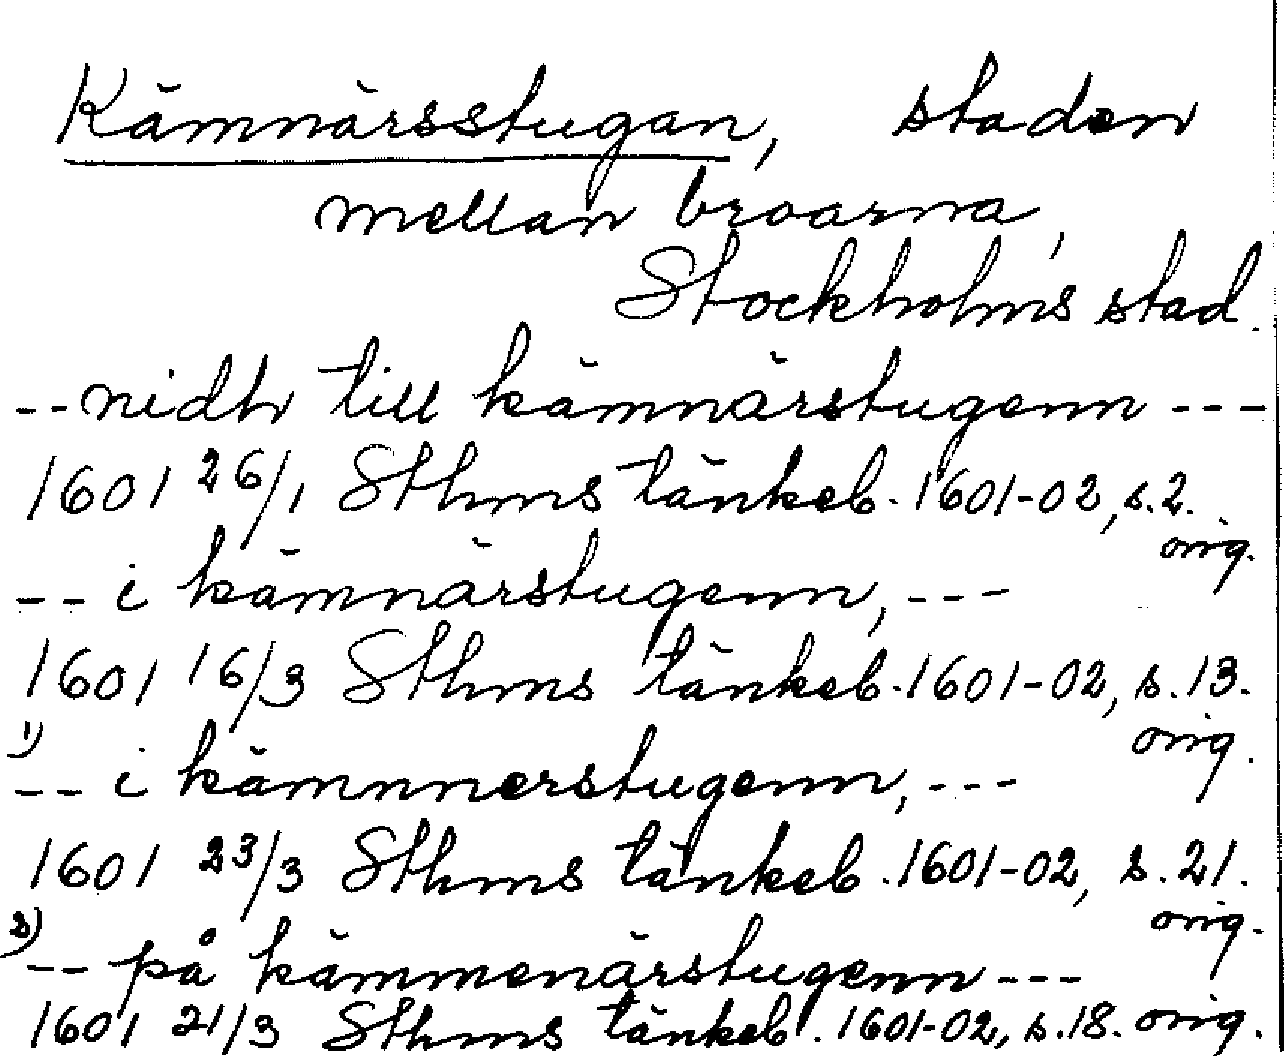 Kämnärsstugan, staden
mellan broarna,
Stockholms stad.
-- nidh till kämnärstugenn ---
1601 26/1 Sthms tänkeb. 1601-02, s.2.
orig.
-- i kämnärstugenn, ---
1601 16/3 Sthms tänkeb. 1601-02, s.13.
orig.
1)
-- i kämnnerstugenn, ---
1601 23/3 Sthms tänkeb. 1601-02, s.21.
orig.
2)
-- på kämmenärstugenn ---
1601 21/3 Sthms tänkeb. 1601-02, s.18. orig.